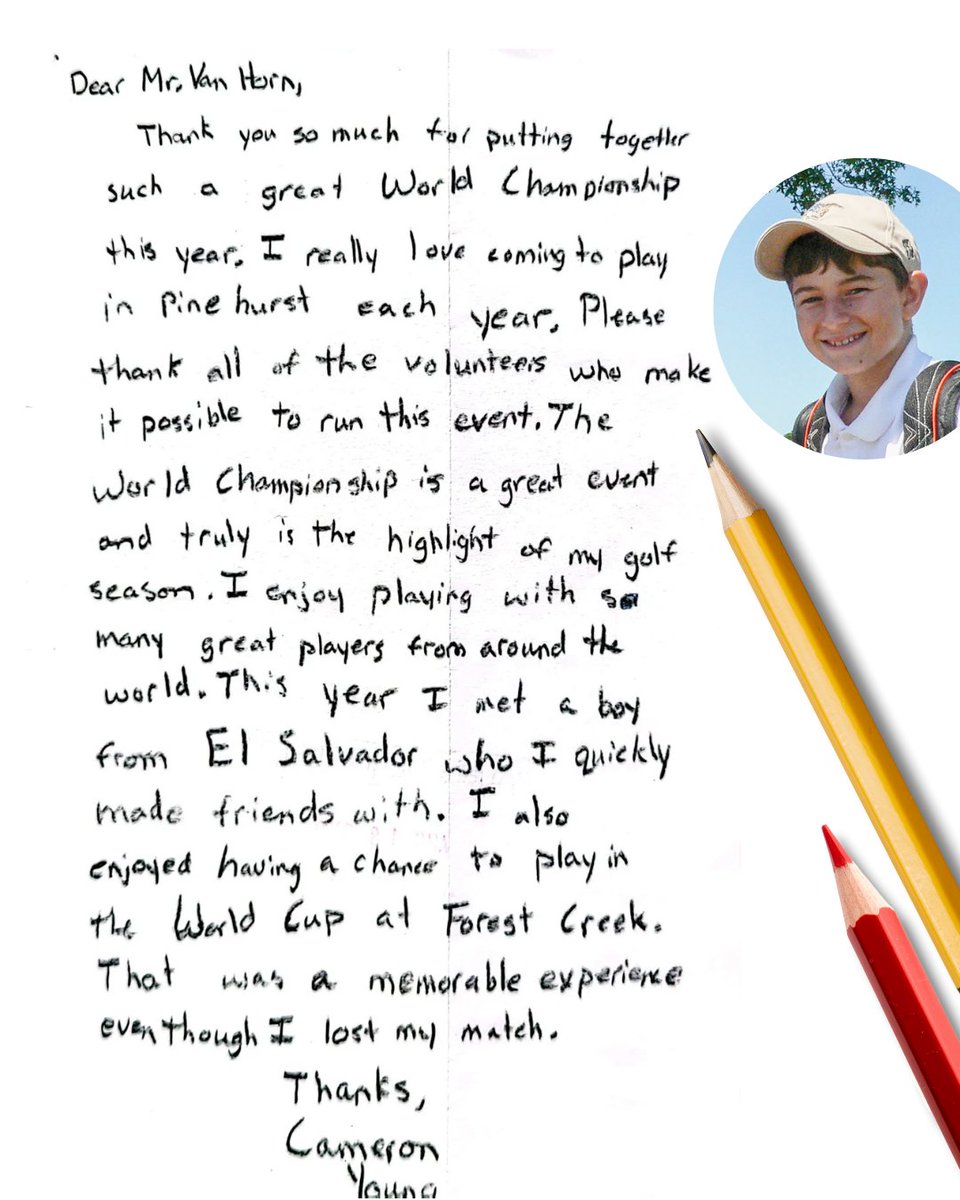 Dear Mr. Van Horn,
Thank you so much for putting together
such a great World Championship
this year. I really love coming to play
in Pinehurst each year. Please
thank all of the volunteers who make
it possible to run this event. The
World Championship is a great event
and truly is the highlight of my golf
season. I enjoy playing with so
many great players from around the
world. This year I met a boy
from El Salvador who I quickly
made friends with. I also
enjoyed having a chance to play in
the World Cup at Forest Creek.
That was a memorable experience
even though I lost my match.
Thanks,
Cameron
Young